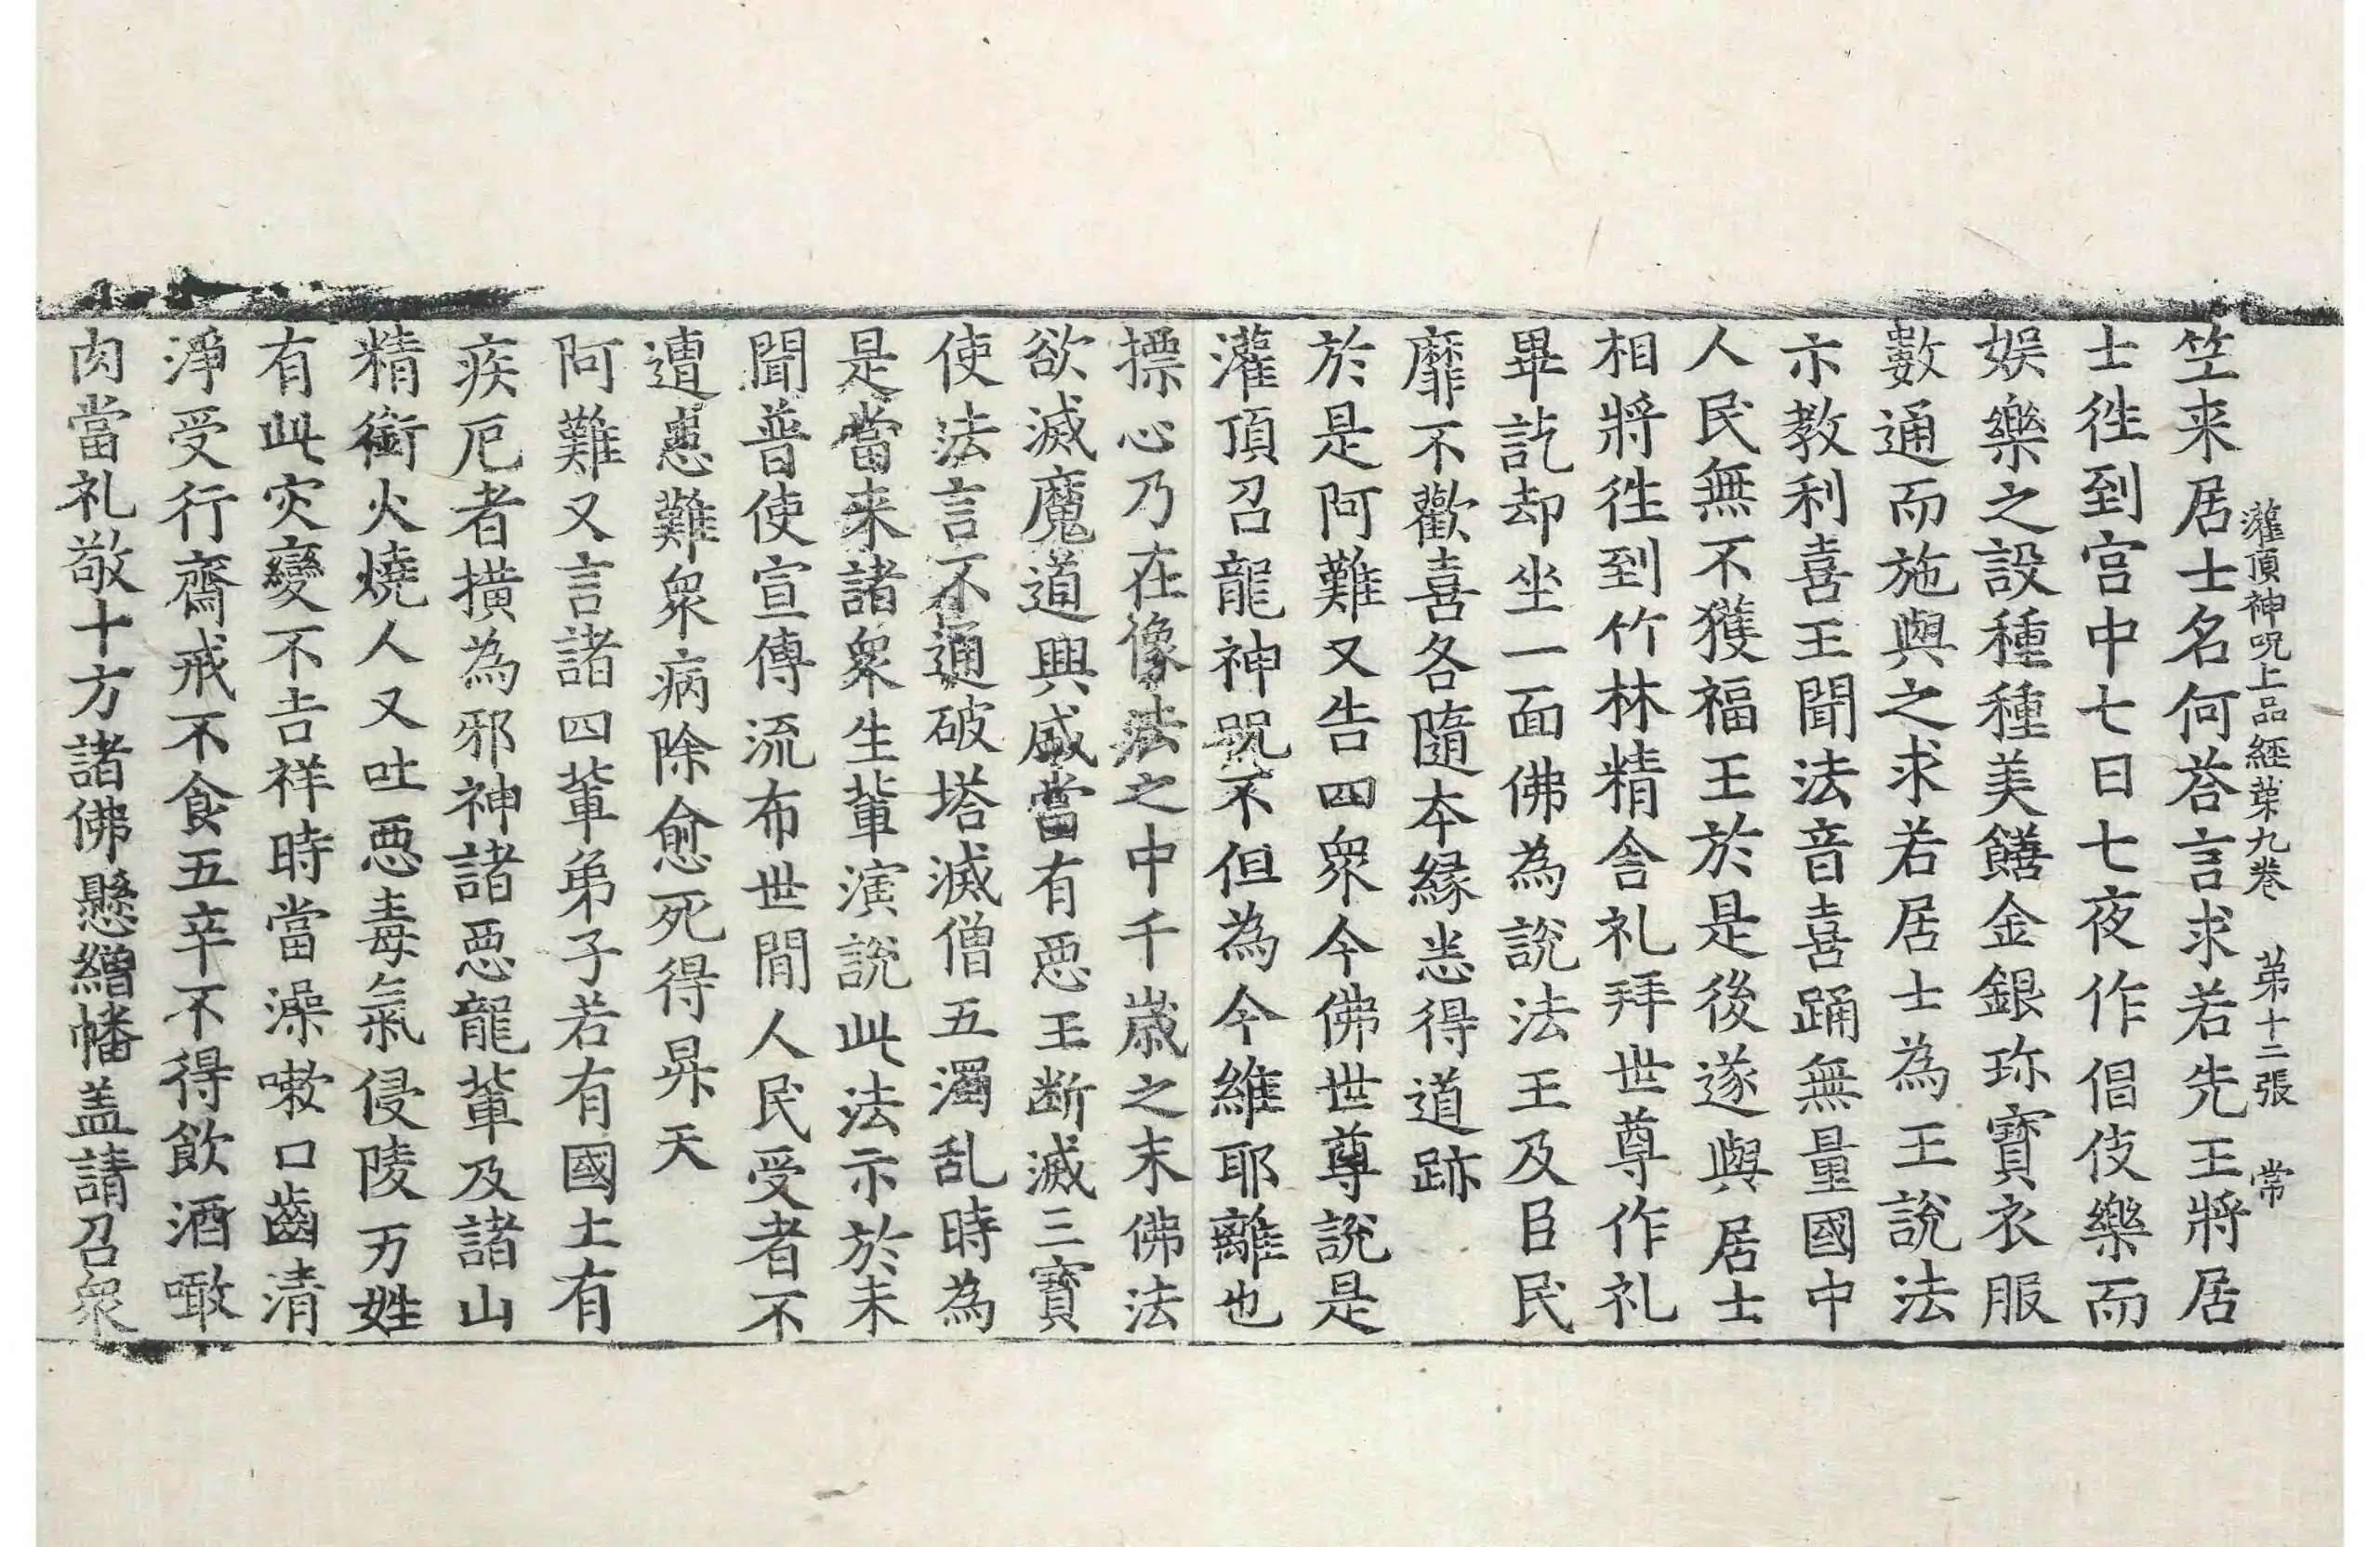 灌頂神呪上品經葉九卷　第十二張　常
笠来居士名何荅言求若先王將居
士徃到宫中七日七夜作倡伎樂而
娱樂之設種種美饍金銀珎寶衣服
數通而施與之求若居士為王說法
示教利喜王聞法音喜踊無量國中
人民無不獲福王於是後遂與居士
相將徃到竹林精舎礼拜世尊作礼
畢訖却坐一面佛為說法王及臣民
靡不歡喜各隨夲緣悉得道跡
於是阿難又告四衆今佛世尊說是
灌頂召龍神呪不但為今維耶離也
摽心乃在像法之中千歲之末佛法
欲滅魔道興盛當有惡王断滅三寶
使法言不通破塔滅僧五濁乱時為
是當来諸衆生軰演說此法示於未
聞普使宣傳流布世間人民受者不
遭患難衆病除愈死得昇天
阿難又言諸四軰弟子若有國土有
疾厄者撗為邪神諸惡龍軰及諸山
精銜火燒人又吐惡毒氣侵陵万姓
有此灾變不吉祥時當澡嗽口齒清
淨受行齋戒不食五辛不得飲酒噉
肉當礼敬十方諸佛懸繒幡盖請召衆